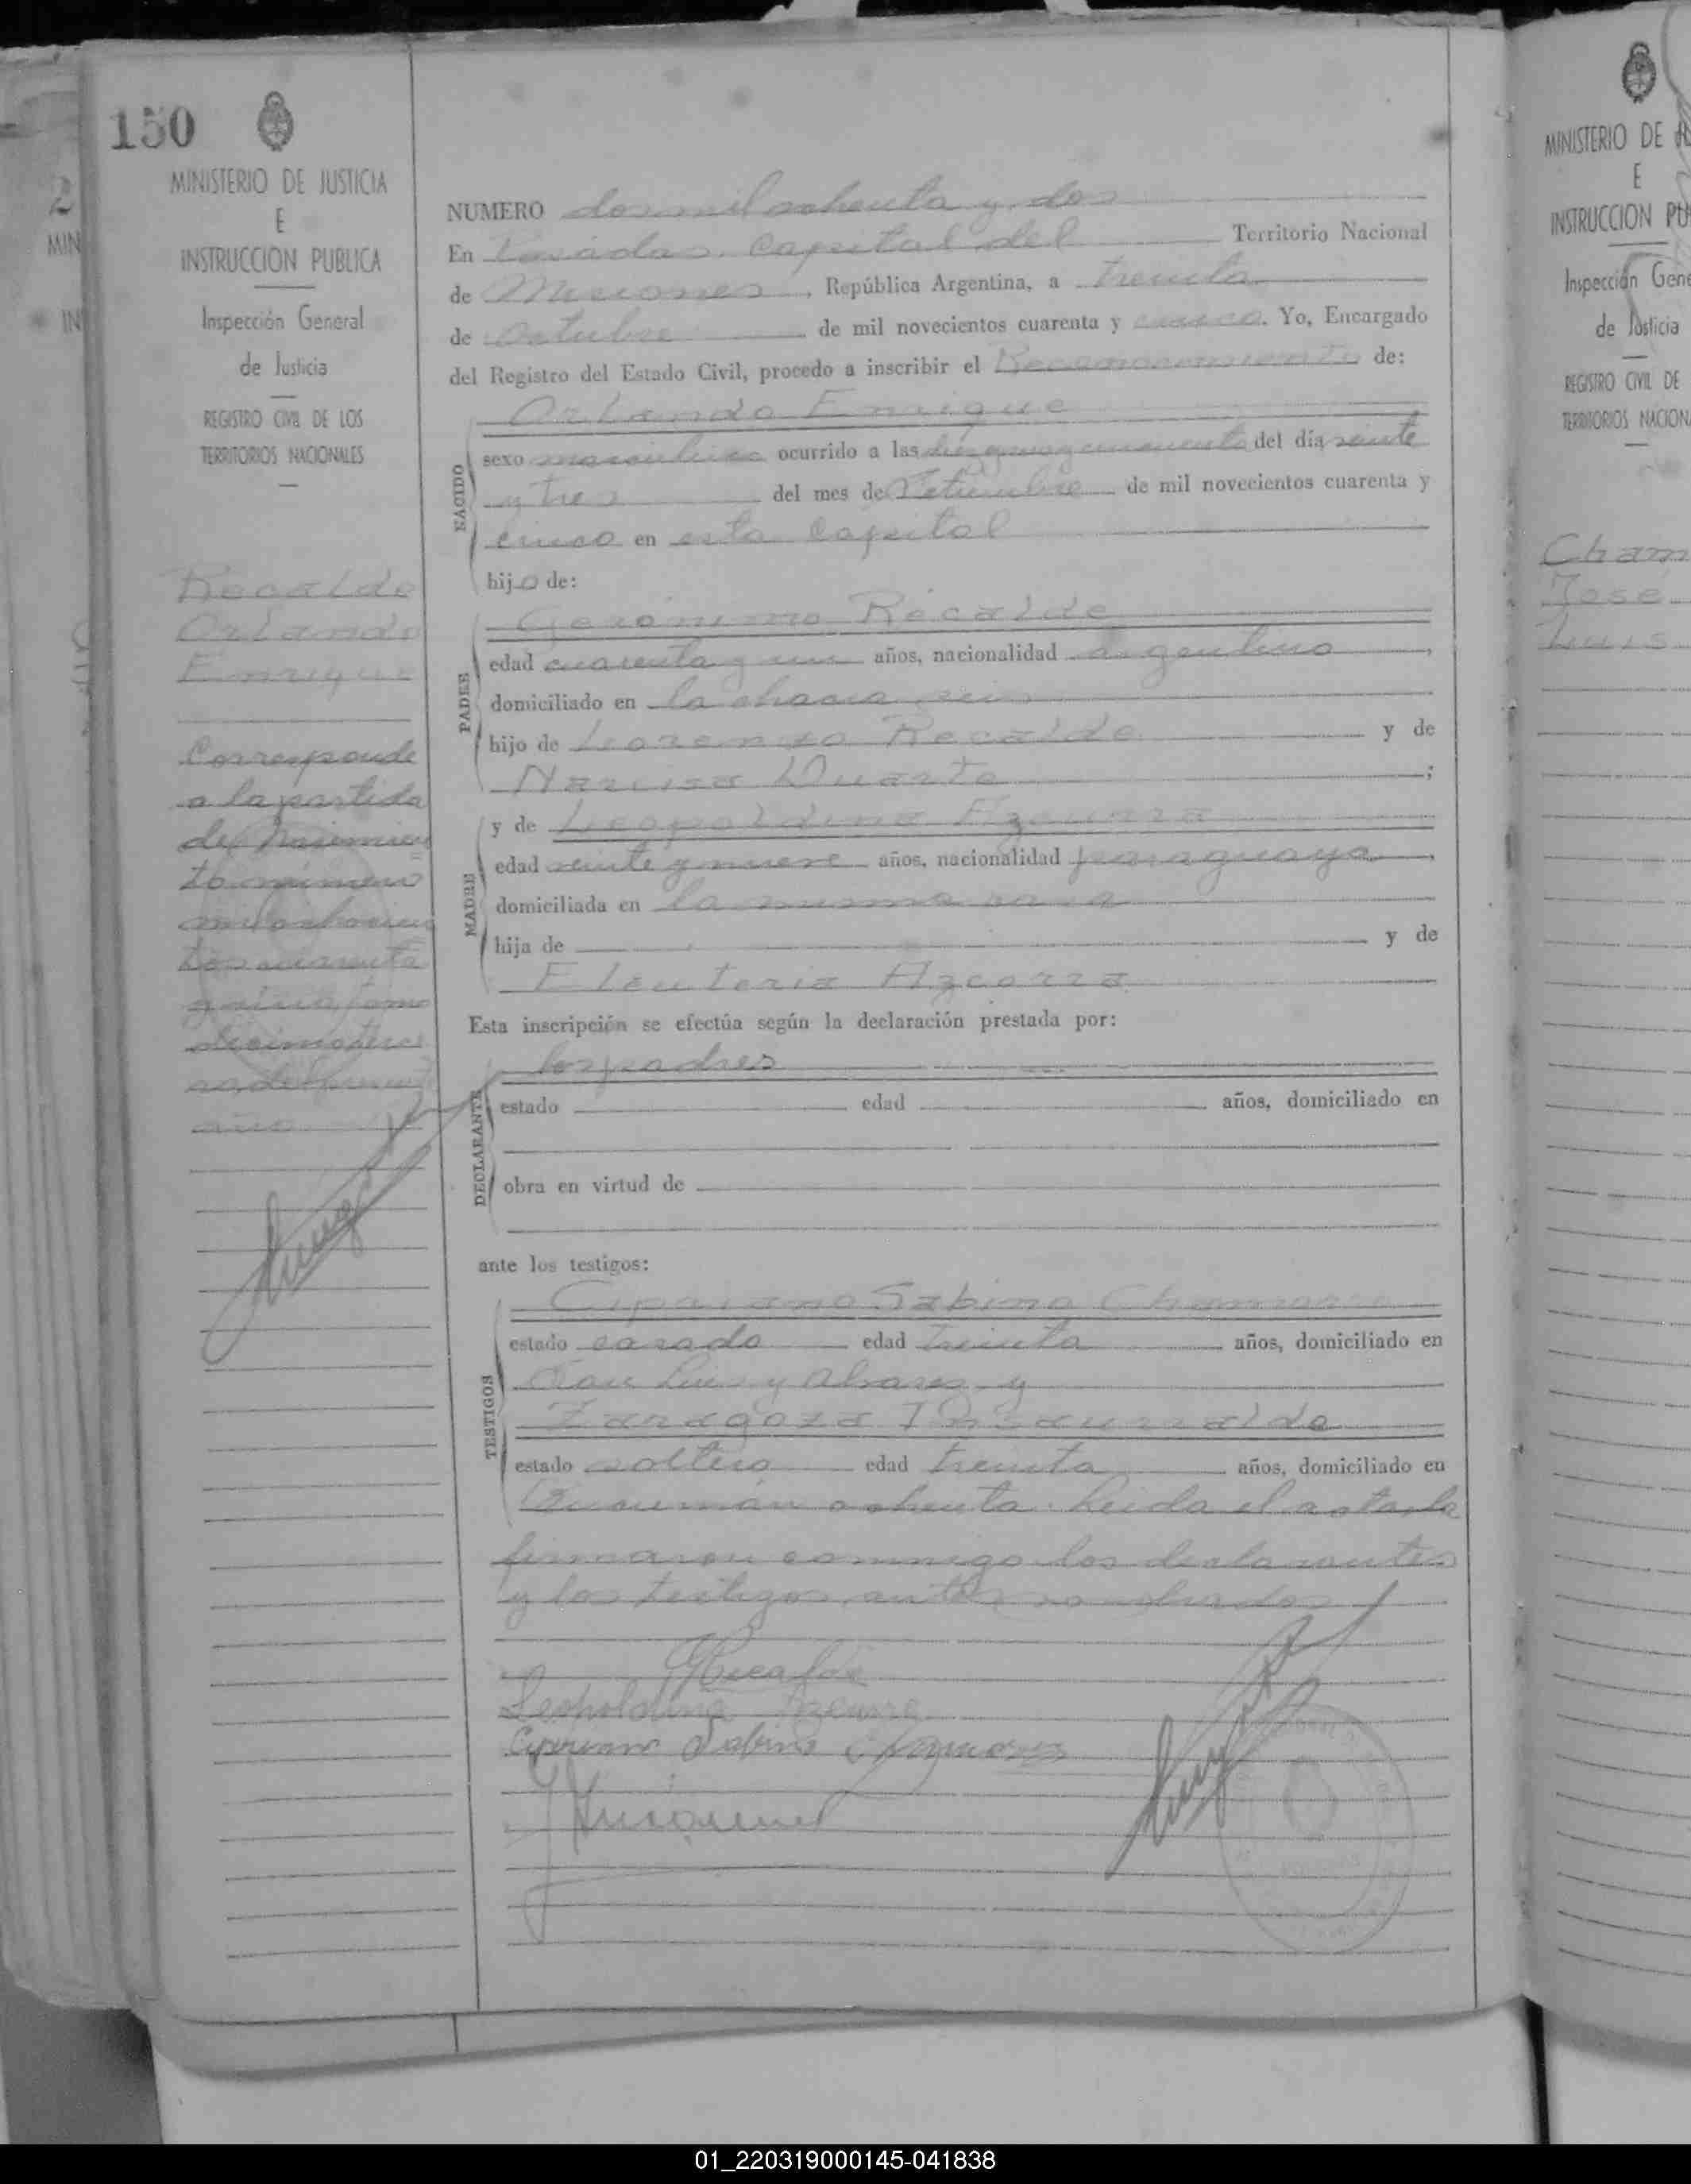 150
MINISTERIO DE JUSTICIA
E
INSTRUCCION PUBLICA
Inspección General
de Justicia
REGISTRO CIVIL DE LOS
TERRITORIOS NACIONALES
Recalde
Orlando
Enrique
Corresponde
a la partida
de Nacimien
to número
mil ochocien
tos cuarenta
tomo
año
NUMERO dos mil ochenta y dos
En Posadas, Capital del Territorio Nacional
de Misiones, República Argentina, a treinta
de octubre de mil novecientos cuarenta y cinco. Yo, Encargado
del Registro del Estado Civil, procedo a inscribir el Reconocimiento de:
Orlando Enrique
NACIDO
sexo masculino ocurrido a las del día veinte
y tres del mes de Setiembre de mil novecientos cuarenta y
cinco en esta Capital
hijo de:
PADRE
Geronimo Recalde
edad cuarenta y un años, nacionalidad argentino,
domiciliado en la chacra seis
hijo de Lorenzo Recalde y de
Narcisa Duarte;
MADRE
y de Leopoldina Azcurra
edad veinte y nueve años, nacionalidad paraguaya,
domiciliada en la misma casa
hija de y de
Eleuteria Azcorra
Esta inscripción se efectúa según la declaración prestada por:
DECLARANTE
los padres
estado edad años, domiciliado en
obra en virtud de
ante los testigos:
TESTIGOS
Cipriano Sabino Chamorro
estado casado edad treinta años, domiciliado en
San Luis y Alvarez y
Zaragoza Insaurralde
estado soltero edad treinta años, domiciliado en
Tucumán ochenta. Leida el acta la
firmaron conmigo los declarantes
y los testigos antes nombrados
Recalde
Leopoldina Azcurra
Cipriano Sabino Chamorro
MINISTERIO DE
E
INSTRUCCION PU
Inspección Gene
de Justicia
REGISTRO CIVIL DE
TERRITORIOS NACION
Cham
José
Luis
01_220319000145-041838